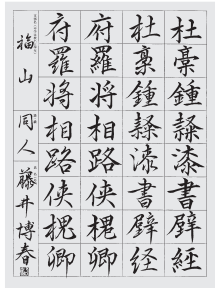 杜稾鍾隷漆書壁經
杜稾鍾隷漆書壁経
府羅将相路侠槐卿
府羅将相路侠槐卿
福山 同人 藤井博春